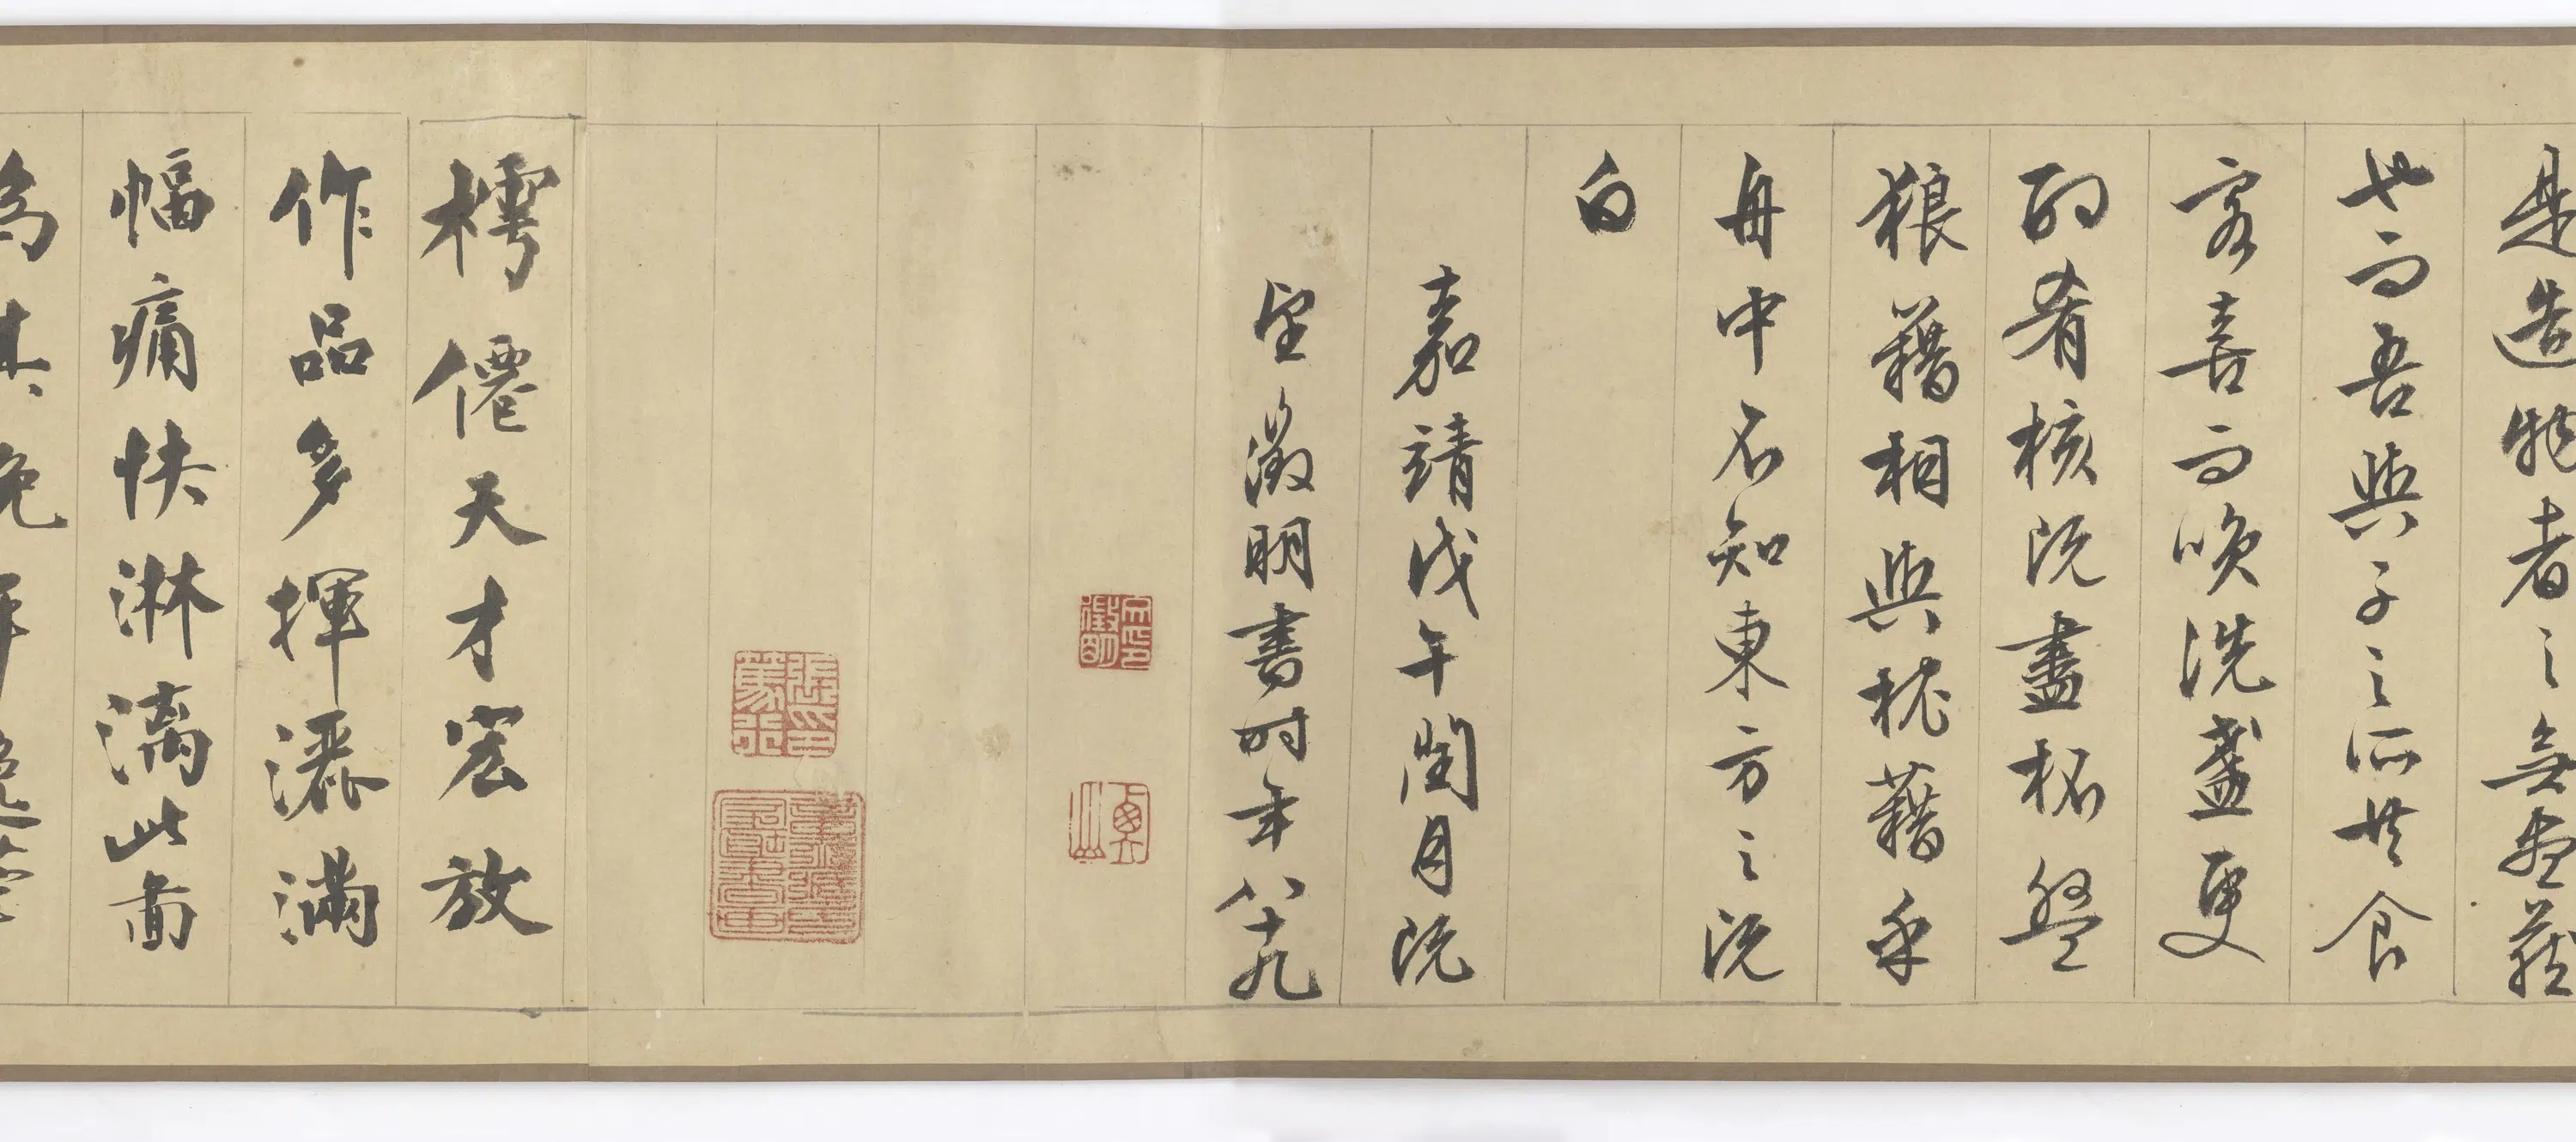 是造物者之無盡藏
也而吾與子之所共食
客喜而唉洗盞更
酌肴核既盡杯盤
狼藉相與枕藉乎
舟中不知東方之既
白
嘉靖戊午閏月既
望徵明書時年八十九
樗僊天才宏放
作品多揮灑滿
幅痛快淋漓此啚
為其晚年